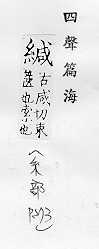 四聲篇海
緘
古咸切束
篋也索也
糸部